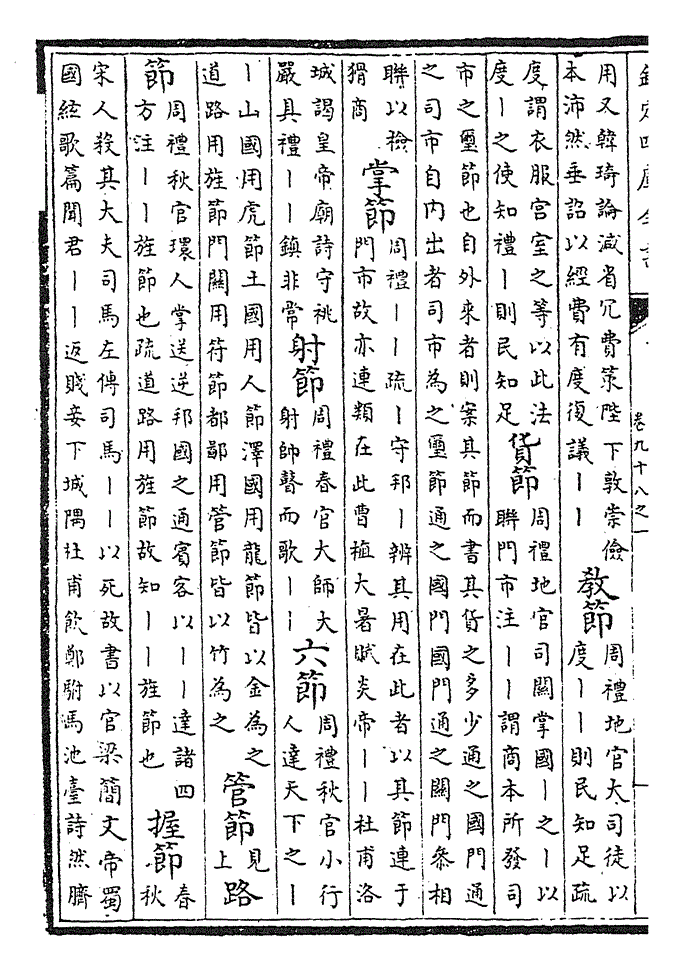 卷九十八之一
用又韓琦論減省冗費策陛下敦崇儉
本沛然垂詔以經費有度復議丨丨
教節
周禮地官大司徒以
度丨丨則民知足疏
度謂衣服宮室之等以此法
度丨之使知禮丨則民知足
貨節
周禮地官司關掌國丨之丨以
聯門市注丨丨謂商本所發司
市之璽節也自外來者則案其節而書其貨之多少通之國門通
之司市自內出者司市為之璽節通之國門國門通之關門叅相
聯以檢
猾商
掌節
周禮丨丨疏丨守邦丨辨其用在此者以其節連于
門市故亦連類在此曹植大暑賦炎帝丨丨杜甫洛
城謁皇帝廟詩守祧
嚴具禮丨丨鎮非常
射節
周禮春官大師大
射師瞽而歌丨丨
六節
周禮秋官小行
人達天下之丨
丨山國用虎節土國用人節澤國用龍節皆以金為之
道路用旌節門關用符節都鄙用管節皆以竹為之
管節
見
上
路
節
周禮秋官環人掌送逆邦國之通賓客以丨丨達諸四
方注丨丨旌節也疏道路用旌節故知丨丨旌節也
握節
春
秋
宋人殺其大夫司馬左傳司馬丨丨以死故書以官梁簡文帝蜀
國絃歌篇聞君丨丨返賤妾下城隅杜甫飲鄭駙馬池臺詩然臍